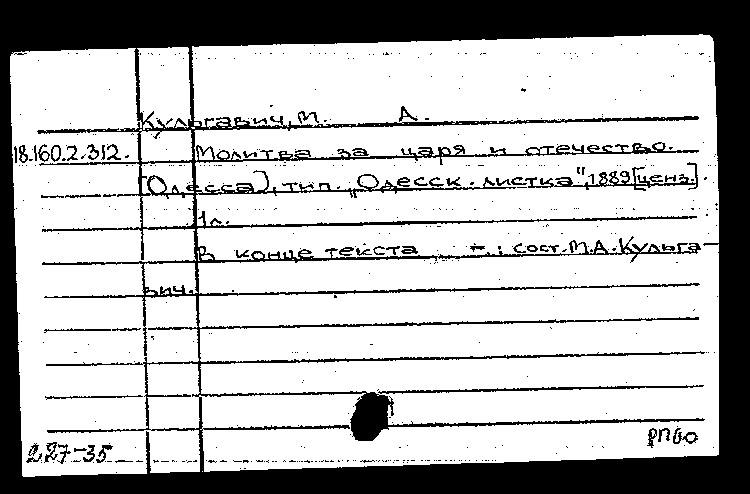 Кульгавич, М. А.
18.160.2.312. Молитва за царя и отечество.
[Одесса], тип. „Одесск. листка", 1889 [ценз.].
1л.
В конце текста : сост. М.А. Кульга-
вич.
227-35